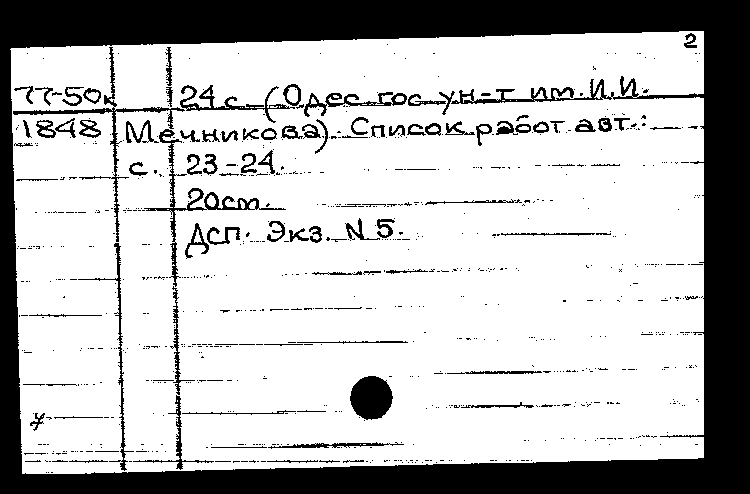 2
77-50к 24 с. (Одес. гос. ун-т им. И.И.
1848 Мечникова). Список работ авт.:
с. 23-24.
20 cm.
Дсп. Экз. N 5.